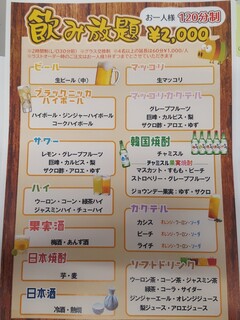 飲み放題
お一人様
120分制
¥2,000
ビール
生ビール(中)
ブラックニッカ
ハイボール
ハイボール・ジンジャーハイボール
コークハイボール
サワー
レモン・グレープフルーツ
巨峰・カルピス・梨
ザクロ酢・アロエ・ゆず
ハイ
ウーロン・コーン・緑茶ハイ
ジャスミンハイ・チューハイ
果実酒
梅酒・あんず酒
日本焼酎
芋・麦
日本酒
冷酒・熱燗
マッコリ
生マッコリ
マッコリカクテル
グレープフルーツ
巨峰・カルピス・梨
ザクロ酢・アロエ・ゆず
韓国焼酎
チャミスル
チャミスル果実焼酎
マスカット・すもも・ピーチ
ストロベリー・グレープフルーツ
ジョウンデー果実:ゆず・ザクロ
カクテル
カシス
ピーチ
ライチ
ソフトドリンク
ウーロン茶・コーン茶・ジャスミン茶
緑茶・コーラ・サイダー
ジンジャーエール・オレンジジュース
梨ジュース・アロエジュース